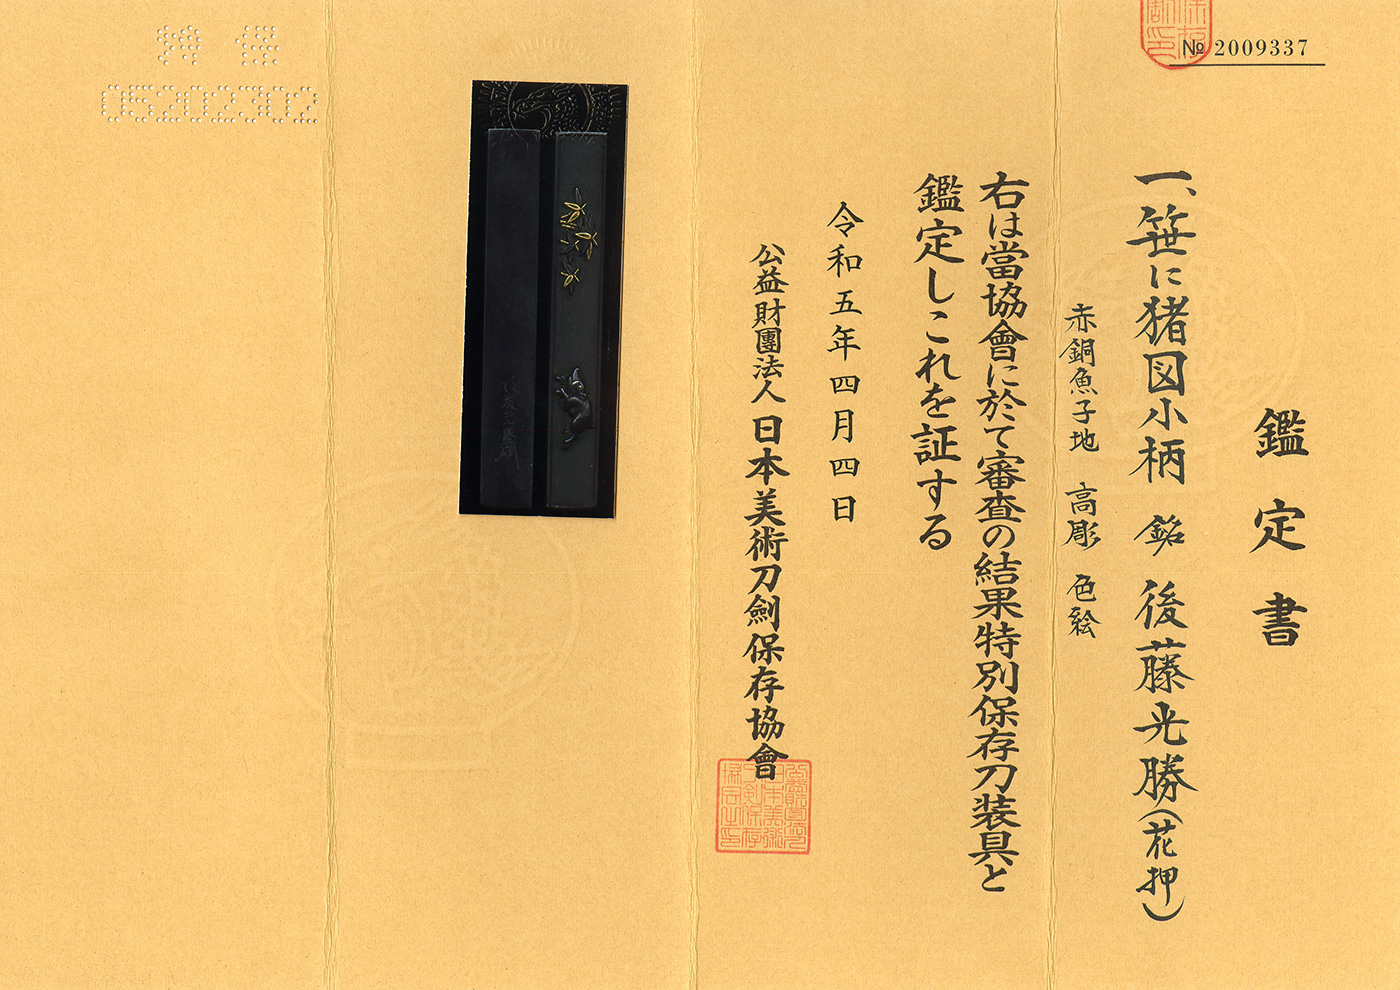 № 2009337
鑑定書
一、笹に猪図小柄 銘 後藤光勝(花押)
赤銅魚子地 高彫 色絵
右は當協會に於て審査の結果特別保存刀装具と
鑑定しこれを証する
令和五年四月四日
公益財團法人 日本美術刀劍保存協會
05202302